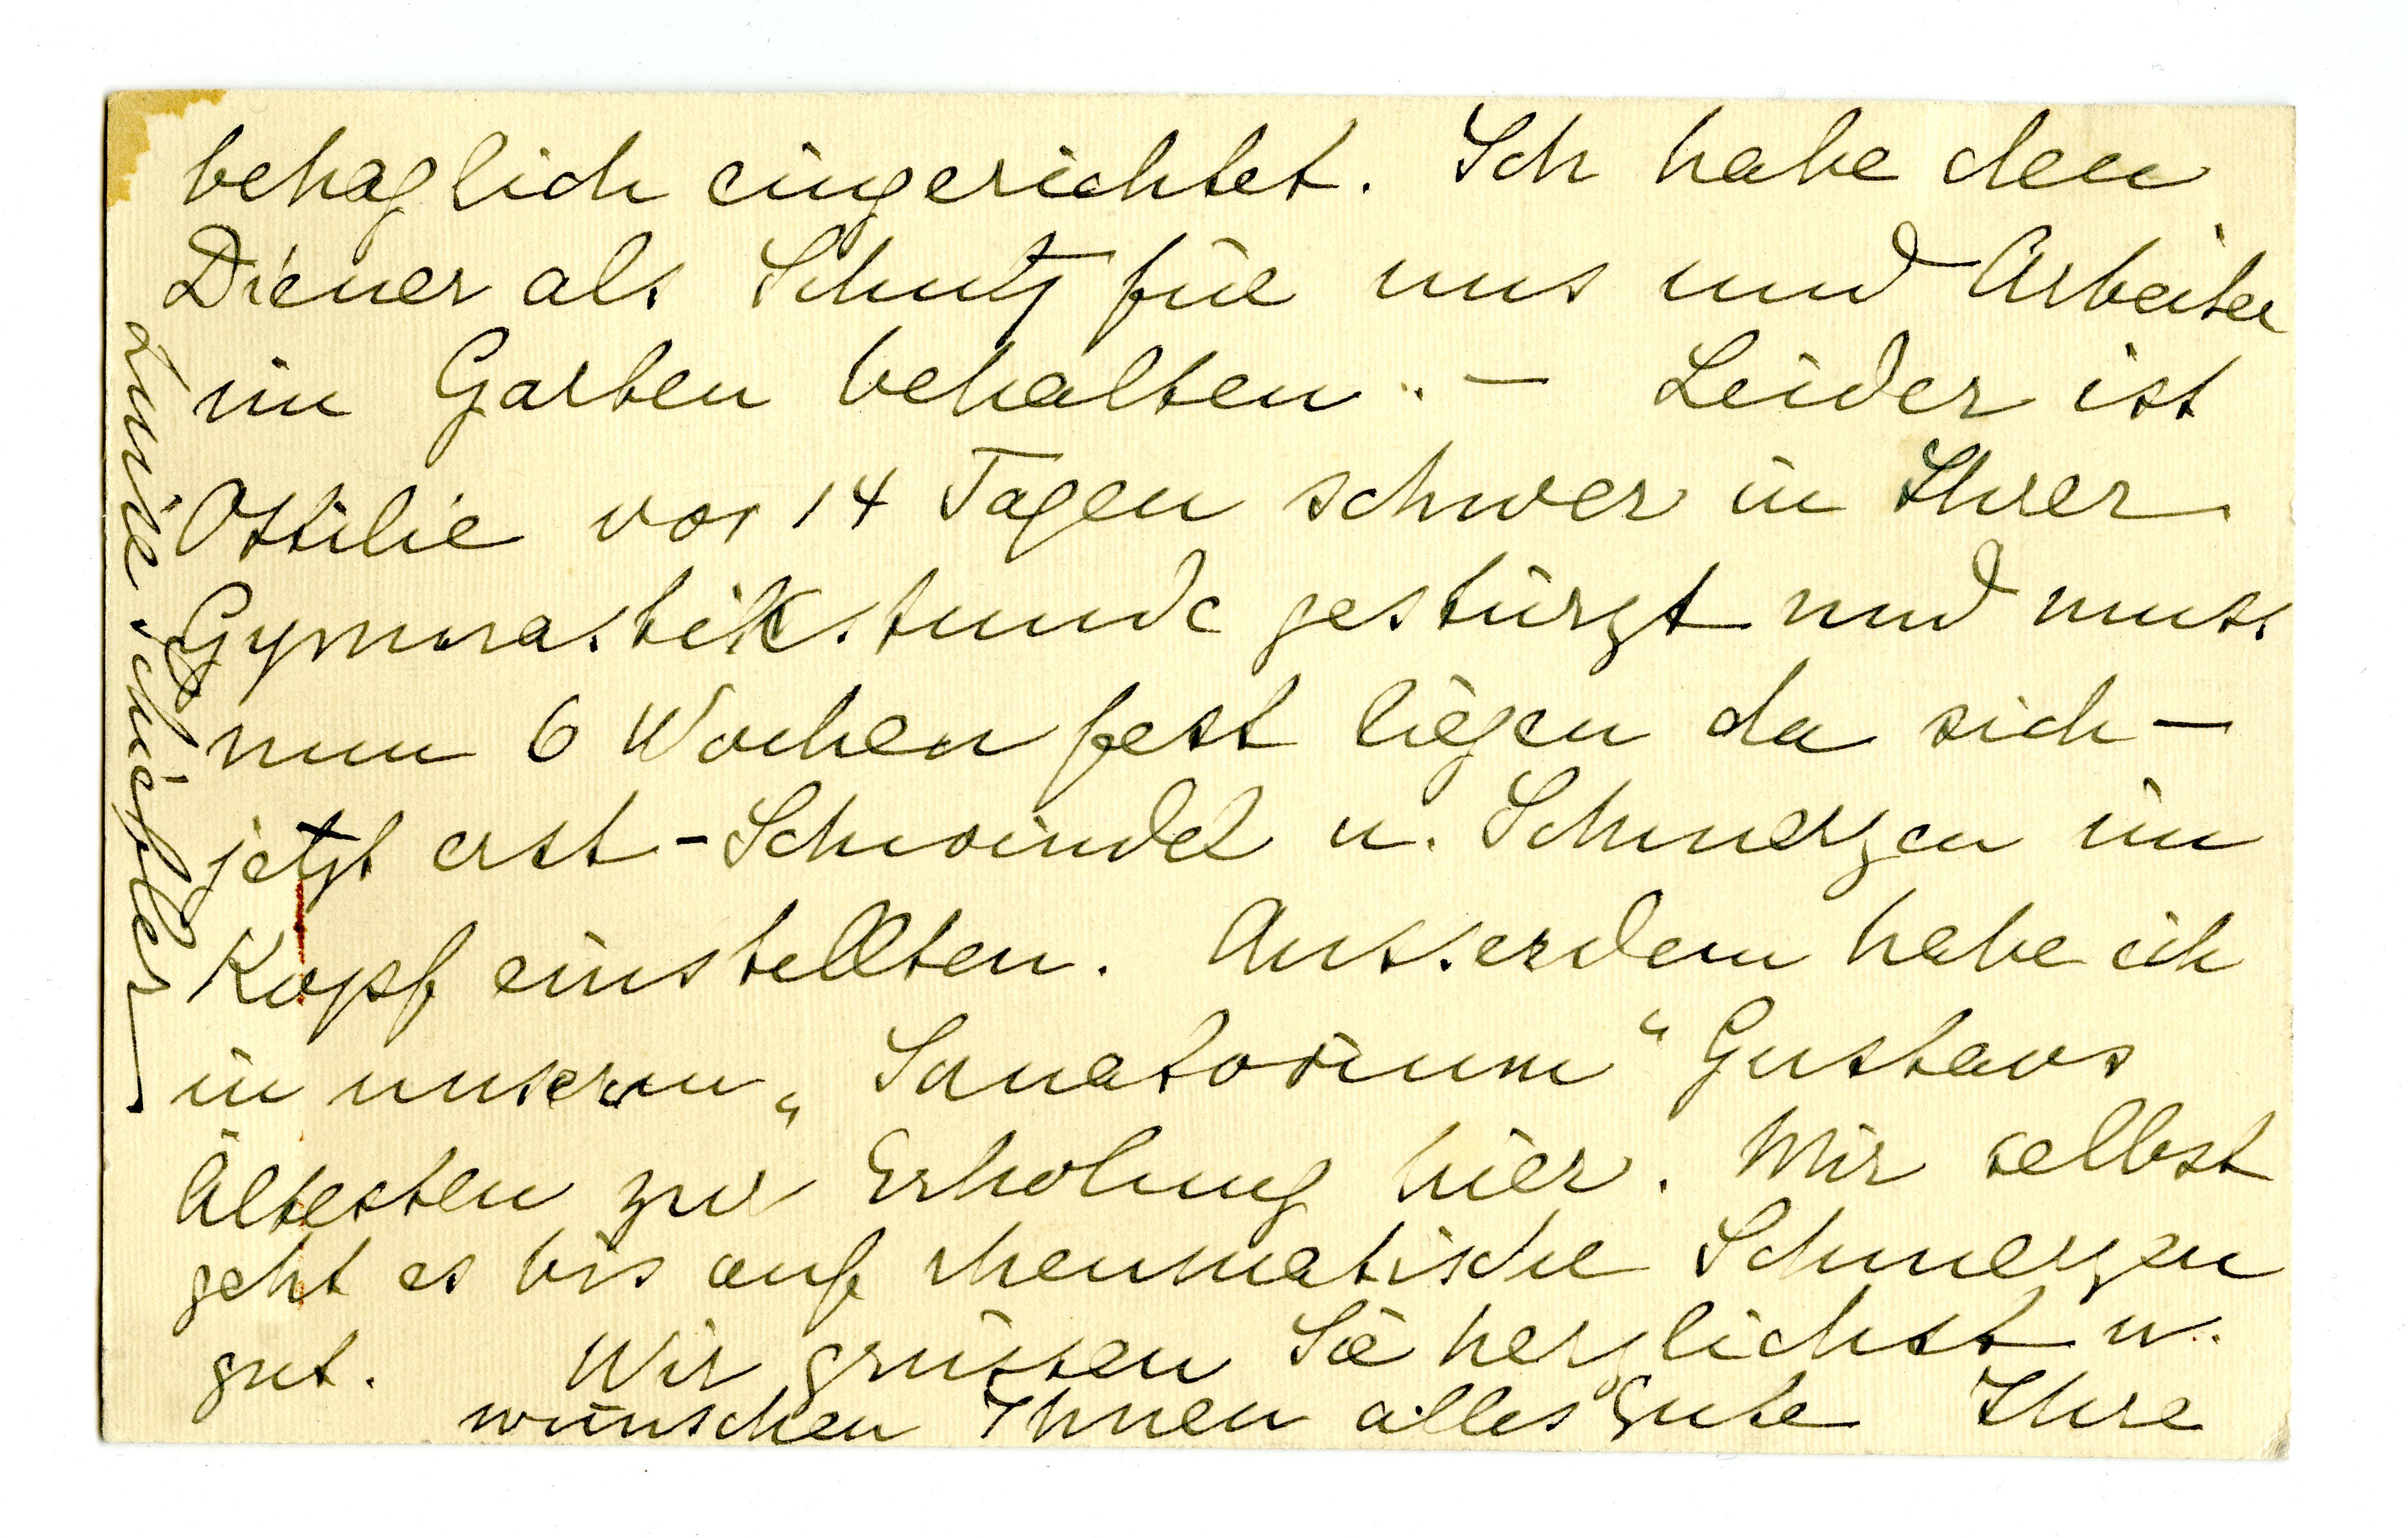 behaglich eingerichtet. Ich habe den
Diener als Schutz für uns und Arbeiter
im Garten behalten. – Leider ist
Ottilie vor 14 Tagen schwer in Ihrer
Gymnastikstunde gestürzt und muss
nun 6 Wochen fest liegen da sich –
jetzt erst – Schwindel u. Schmerzen im
Kopf einstellten. Ausserdem habe ich
in unserem „Sanatorium“ Gustavs
Ältesten zur Erholung hier. Mir selbst
geht es bis auf rheumatische Schmerzen
gut. Wir grüssen Sie herzlichst u.
wünschen Ihnen alles Gute Ihre